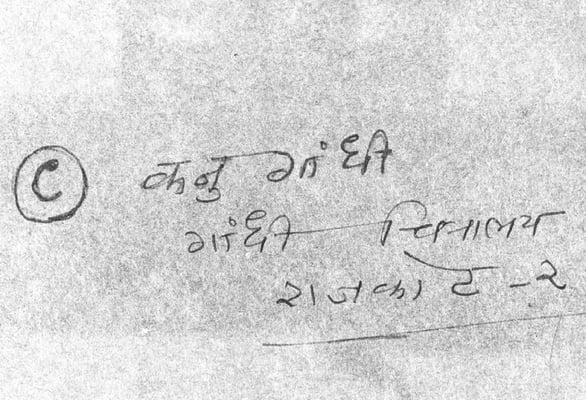 © कनु गांधी
गांधी चित्रालय
राजकोट - २